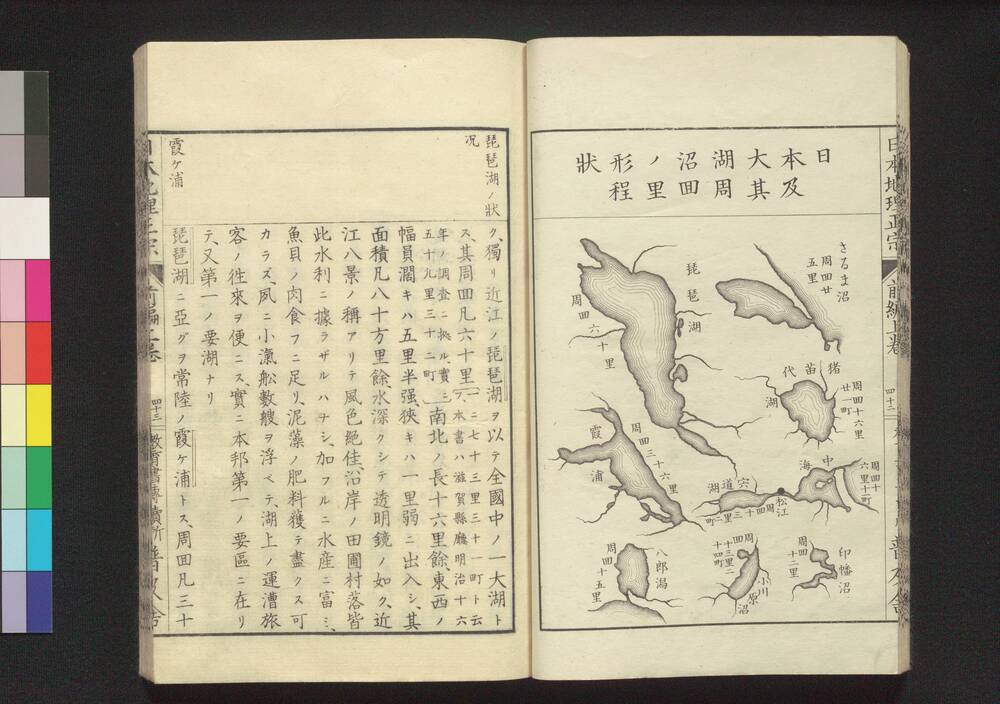 日本及
大其
湖周
沼回
ノ里
形程
狀
さるま沼
周回廿五里
琵琶湖
周回六十里
猪苗代湖
周回十六里廿一町
霞浦
周回三十六里
宍道湖
周回十三里二町
松江
中海
周回十六里十町
八郎潟
周回十五里
小川原沼
周回十三里二十四町
印幡沼
周回十二里
日本地理正宗
前編上卷
四十二
普及舍
琵琶湖ノ狀况
霞ケ浦
ク、獨リ近江ノ琵琶湖ヲ以テ全國中ノ一大湖ト
ス、其周回凡六十里一ニ七十三里三十一町ト云フ、本書ハ滋賀縣廳明治十六年ノ調査ニ據ル實ニ五十九里三十二町南北ノ長十六里餘、東西ノ
幅員濶キハ五里半强狹キハ一里弱ニ出入シ、其
面積凡八十方里餘、水深クシテ透明鏡ノ如ク、近
江八景ノ稱アリテ風色絶佳、沿岸ノ田圃村落皆
此水利ニ據ラザルハナシ、加フルニ水産ニ富ミ、
魚貝ノ肉食フニ足リ、泥藻ノ肥料獲テ盡クス可
カラズ、夙ニ小滊舩數艘ヲ浮ベテ、湖上ノ運漕旅
客ノ徃來ヲ便ニス、實ニ本邦第一ノ要區ニ在リ
テ、又第一ノ要湖ナリ
琵琶湖ニ亞グヲ常陸ノ霞ケ浦トス、周回凡三十
日本地理正宗
前編上卷
四十三
普及舍